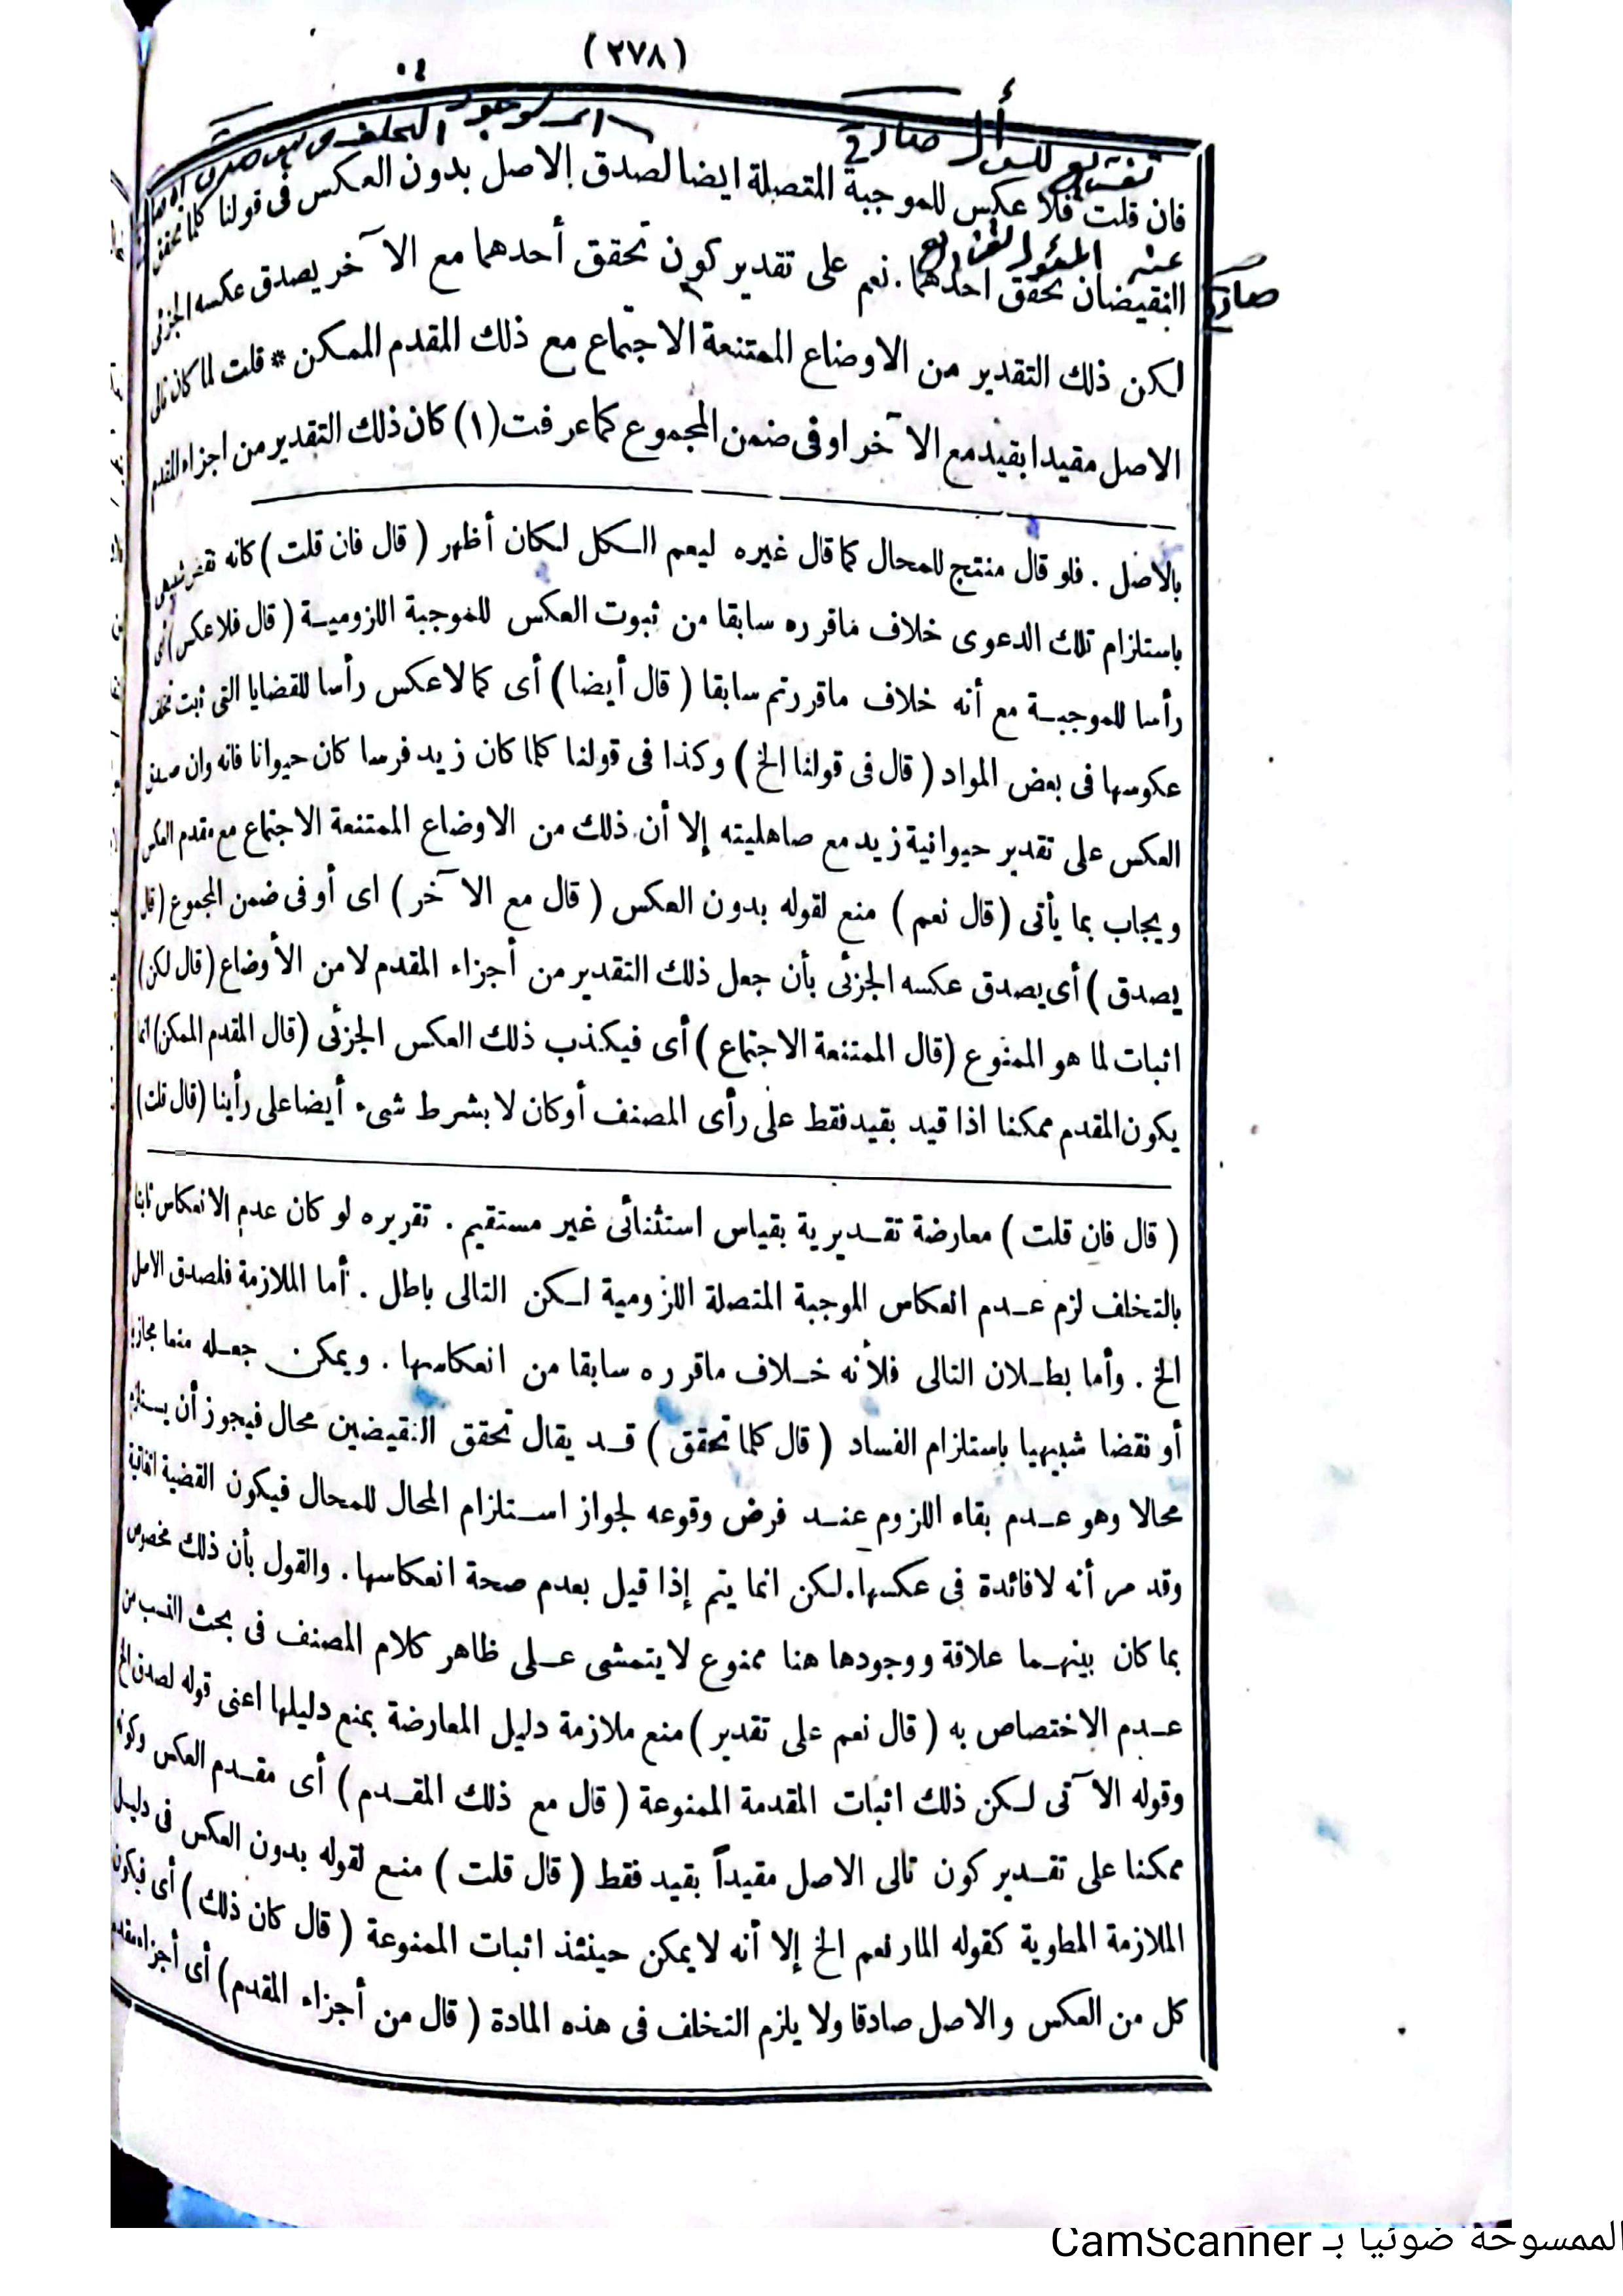 (٢٧٨)
فان قلت فلا عكس للموجبة المتصلة ايضا لصدق الاصل بدون العكس فى قولنا كلما تحقق
النقيضان تحقق احدهما . نعم على تقدير كون تحقق أحدهما مع الآخر يصدق عكسه الجزئى
لكن ذلك التقدير من الاوضاع الممتنعة الاجتماع مع ذلك المقدم الممكن * قلت لما كان تالى
الاصل مقيدا بقيد مع الآخر او فى ضمن المجموع كما عرفت (١) كان ذلك التقدير من اجزاء المقدم
بالاصل . فلو قال منتج للمحال كما قال غيره ليعم الكل لكان أظهر ( قال فان قلت ) كانه نقض شبيهى
باستلزام تلك الدعوى خلاف ماقرره سابقا من ثبوت العكس للموجبة اللزومية ( قال فلا عكس ) أى
رأسا للموجبة مع أنه خلاف ماقررتم سابقا ( قال أيضا ) أى كما لاعكس رأسا للقضايا التى ثبت تخلف
عكوسها فى بعض المواد ( قال فى قولنا الخ ) وكذا فى قولنا كلما كان زيد فرسا كان حيوانا فانه وان صدق
العكس على تقدير حيوانية زيد مع صاهليته إلا أن ذلك من الاوضاع الممتنعة الاجتماع مع مقدم العكس
ويجاب بما يأتى ( قال نعم ) منع لقوله بدون العكس ( قال مع الآخر ) اى أو فى ضمن المجموع ( قال
يصدق ) أى يصدق عكسه الجزئى بأن جعل ذلك التقدير من أجزاء المقدم لا من الأوضاع ( قال لكن )
اثبات لما هو الممنوع ( قال الممتنعة الاجتماع ) أى فيكذب ذلك العكس الجزئى ( قال المقدم الممكن ) انما
يكون المقدم ممكنا اذا قيد بقيد فقط على رأى المصنف أو كان لا بشرط شىء أيضا على رأينا ( قال قلت )
( قال فان قلت ) معارضة تقديرية بقياس استثنائى غير مستقيم . تقريره لو كان عدم الانعكاس ثابتا
بالتخلف لزم عدم انعكاس الموجبة المتصلة اللزومية لكن التالى باطل . أما الملازمة فلصدق الاصل
الخ . وأما بطلان التالى فلأنه خلاف ماقرره سابقا من انعكاسها . ويمكن جعله منعا مجازيا
أو نقضا شبيهيا باستلزام الفساد ( قال كلما تحقق ) قد يقال تحقق النقيضين محال فيجوز أن يستلزم
محالا وهو عدم بقاء اللزوم عند فرض وقوعه لجواز استلزام المحال للمحال فيكون القضية اتفاقية
وقد مر أنه لافائدة فى عكسها . لكن انما يتم إذا قيل بعدم صحة انعكاسها . والقول بأن ذلك مخصوص
بما كان بينهما علاقة ووجودها هنا ممنوع لايتمشى على ظاهر كلام المصنف فى بحث النسب من
عدم الاختصاص به ( قال نعم على تقدير ) منع ملازمة دليل المعارضة بمنع دليلها اعنى قوله لصدق الخ
وقوله الآتى لكن ذلك اثبات المقدمة الممنوعة ( قال مع ذلك المقدم ) أى مقدم العكس وكونه
ممكنا على تقدير كون تالى الاصل مقيداً بقيد فقط ( قال قلت ) منع لقوله بدون العكس فى دليل
الملازمة المطوية كقوله المار نعم الخ إلا أنه لايمكن حينئذ اثبات الممنوعة ( قال كان ذلك ) أى فيكون
كل من العكس والاصل صادقا ولا يلزم التخلف فى هذه المادة ( قال من أجزاء المقدم ) أى أجزاء مقدم
الممسوحة ضوئيا بـ CamScanner